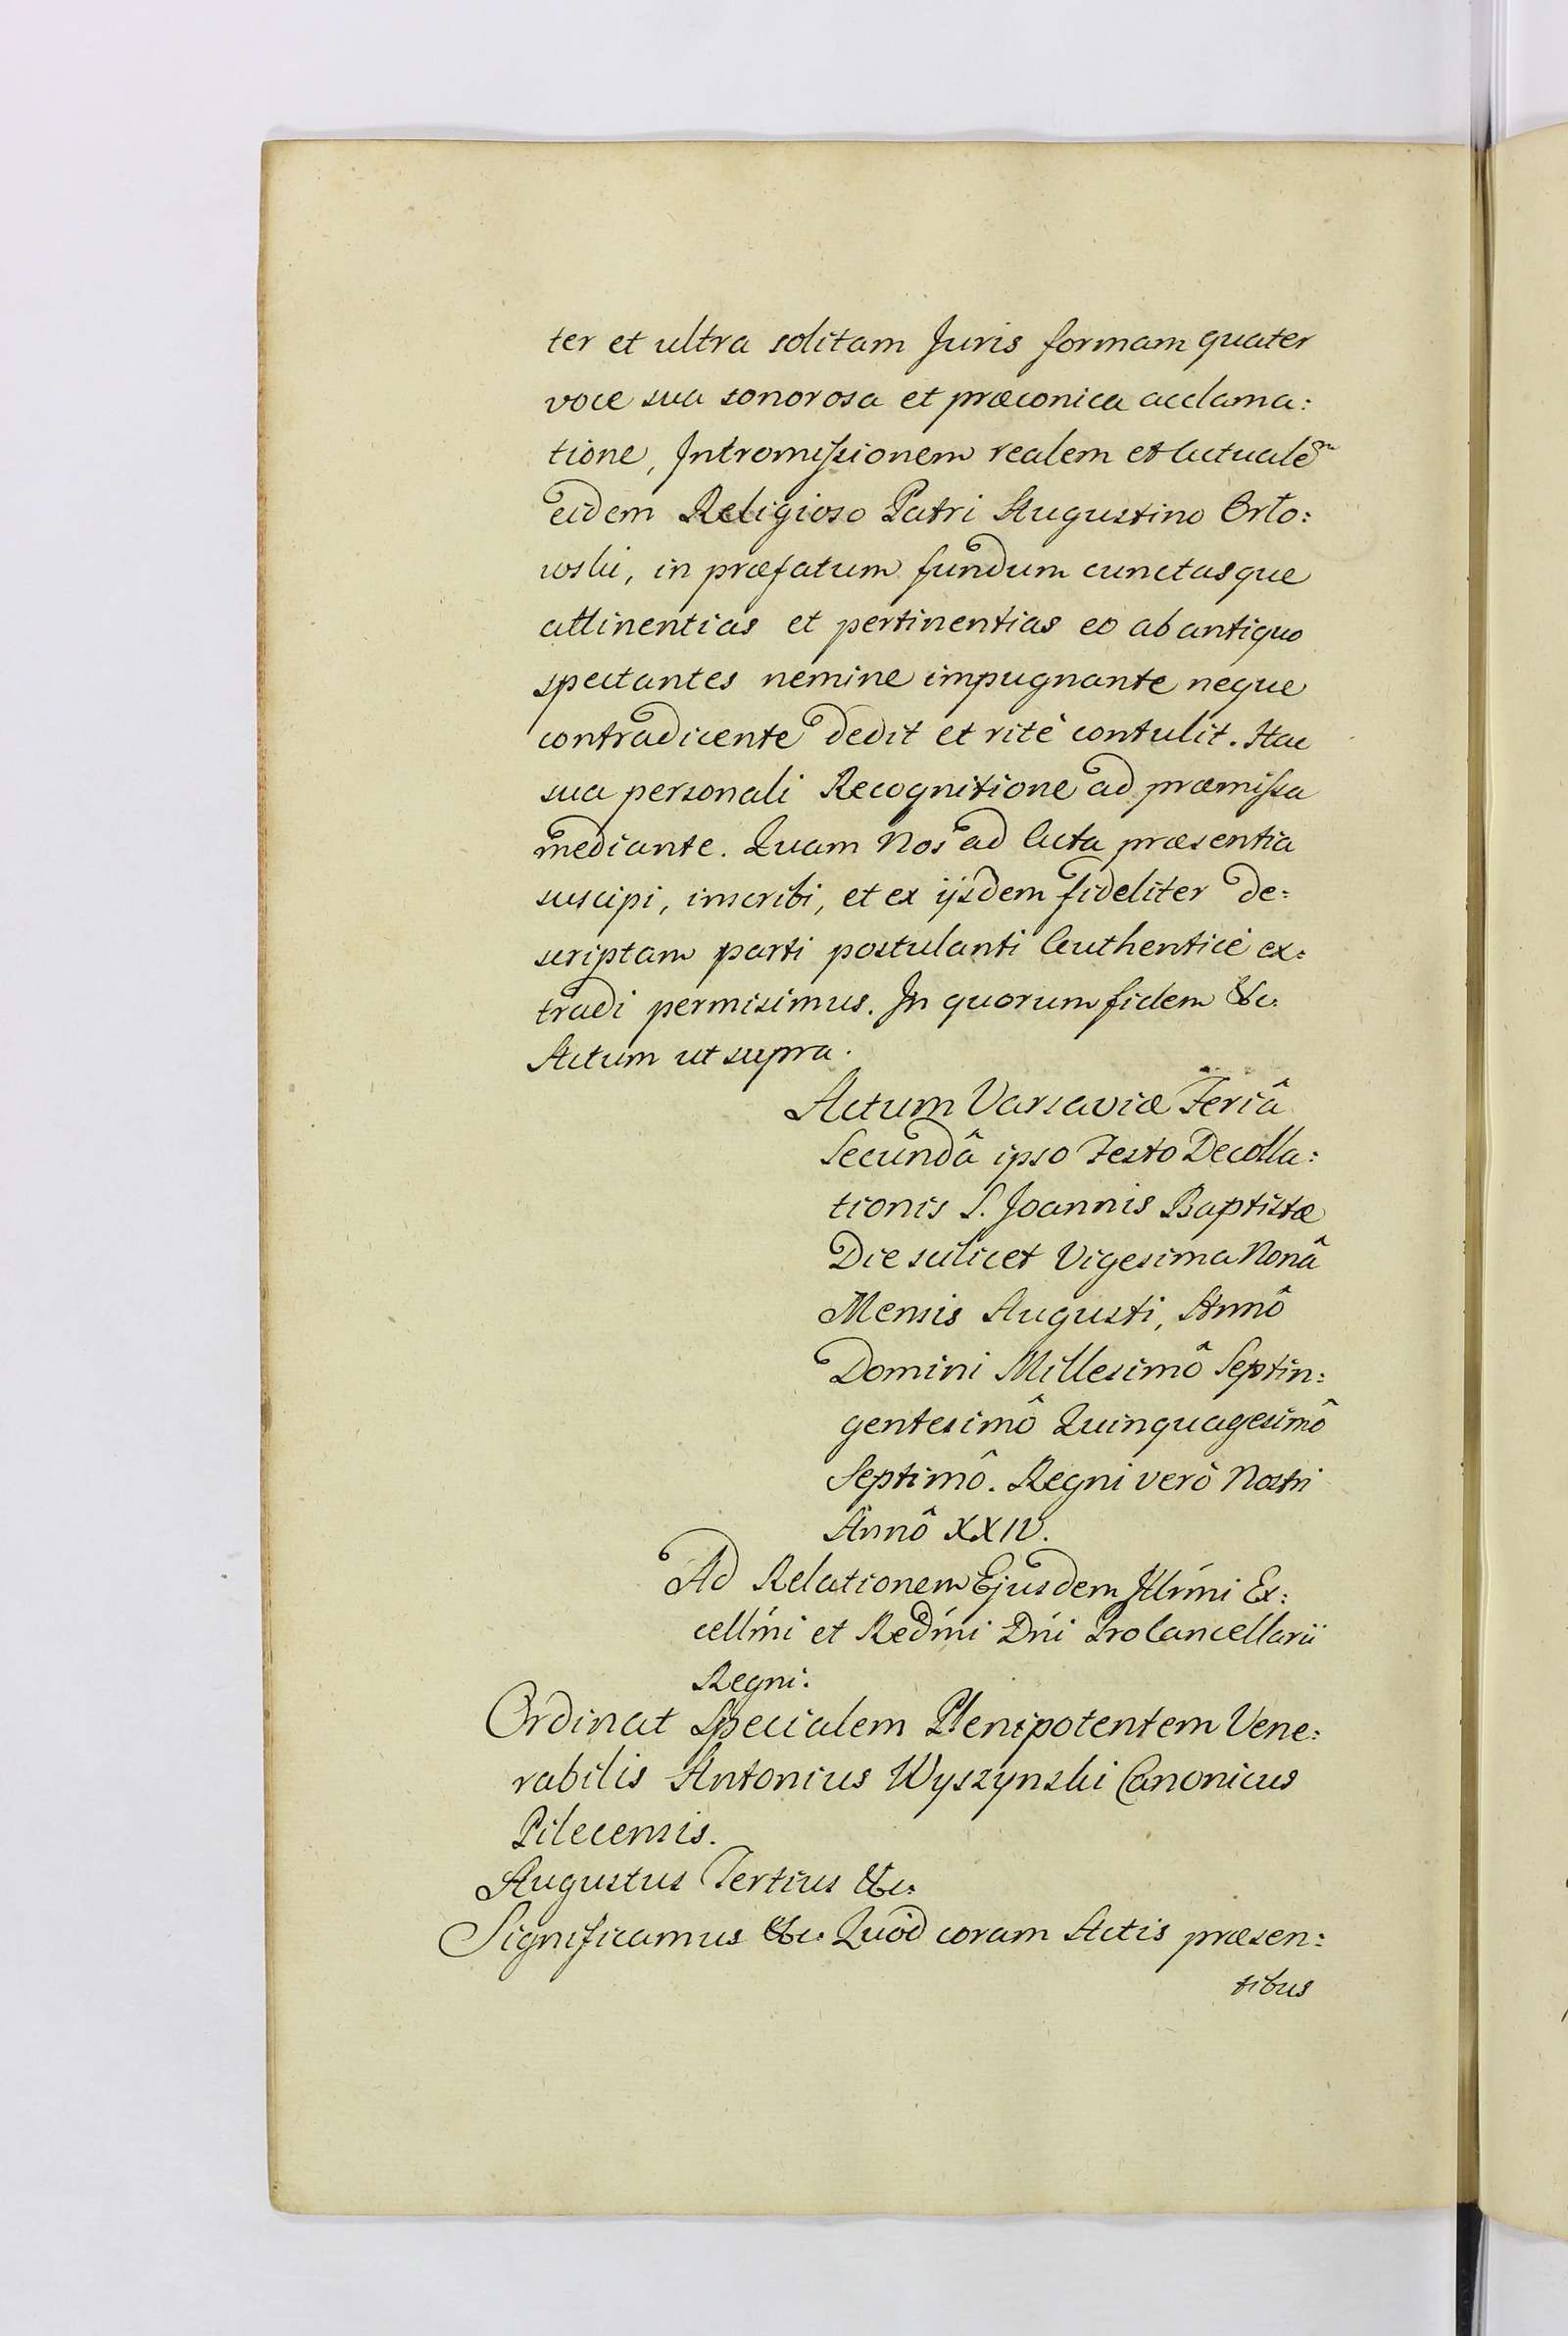 ter et ultra solitam Juris formam quater
voce sua sonorosa et præconica acclama:
tione, Intromissionem realem et Actualem
eidem Religioso Patri Augustino Orło:
wski, in præfatum fundum cunctasque
attinentias et pertinentias eo ab antiquo
spectantes nemine impugnante neque
contradicente dedit et ritè contulit. Hac
sua personali Recognitione ad præmissa
mediante. Quam Nos ad Acta præsentia
suscipi, inscribi, et ex ijsdem fideliter de:
scriptam parti postulanti Authenticè ex:
tradi permisimus. In quorum fidem &c.
Actum ut supra.
Actum Varsaviæ Feriâ
Secundâ ipso Festo Decolla:
tionis S. Joannis Baptistæ
Die scilicet Vigesima Nonâ
Mensis Augusti, Annô
Domini Millesimô Septin:
gentesimô Quinquagesimô
Septimô. Regni verò Nostri
Annô XXIV.
Ad Relationem Ejusdem Illrmi Ex:
cellmi et Redmi Dni ProCancellarii
Regni.
Ordinat Specialem Plenipotentem Vene:
rabilis Antonius Wyszynski Canonicus
Pilecensis.
Augustus Tertius &c.
Significamus &c. Quòd coram Actis præsen:
tibus